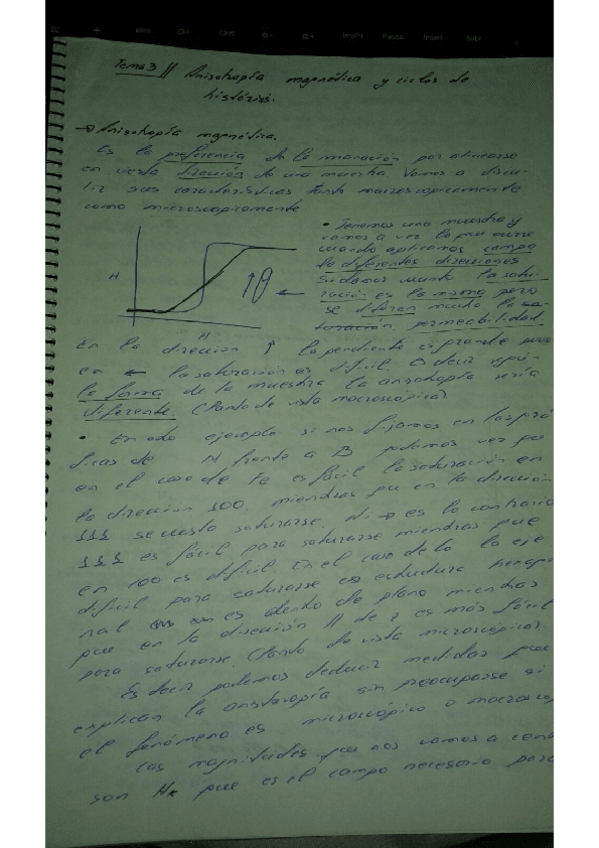 Tema 3 // Anisotropía magnética y ciclos de
histéresis.
→ Anisotropía magnética.
Es la preferencia de la imanación por alinearse
en cierta dirección de una muestra. Vamos a
sus características tanto macroscópicamente
como microscópicamente
• Tenemos una muestra y
vamos a ver lo que ocurre
cuando aplicamos campo
de diferentes direcciones
la satu-
ración es la misma pero
se difiere mucho la
permeabilidad.
M
H
En la dirección ↑ la pendiente es grande
en ← la saturación es difícil. Es decir según
la forma de la muestra la anisotropía sería
diferente (Punto de vista macroscópico)
• En otro ejemplo si nos fijamos en las grá
ficas de M frente a B podemos ver que
en el caso de Fe es fácil la saturación en
la dirección 100, mientras que en la dirección
111 se cuesta saturarse. Ni → es lo contrario
111 es fácil para saturarse mientras que
en 100 es difícil. En el caso de Co la eje
difícil para saturarse es estructura hexago
nal es dentro de plano mientras
que en la dirección // de z es más fácil
para saturarse. (Punto de vista microscópico)
Es decir podemos deducir medidas que
explican la anisotropía sin preocuparse si
el fenómeno es microscópico o macroscóp
Las magnitudes que nos vamos a
son Hk que es el campo necesario para